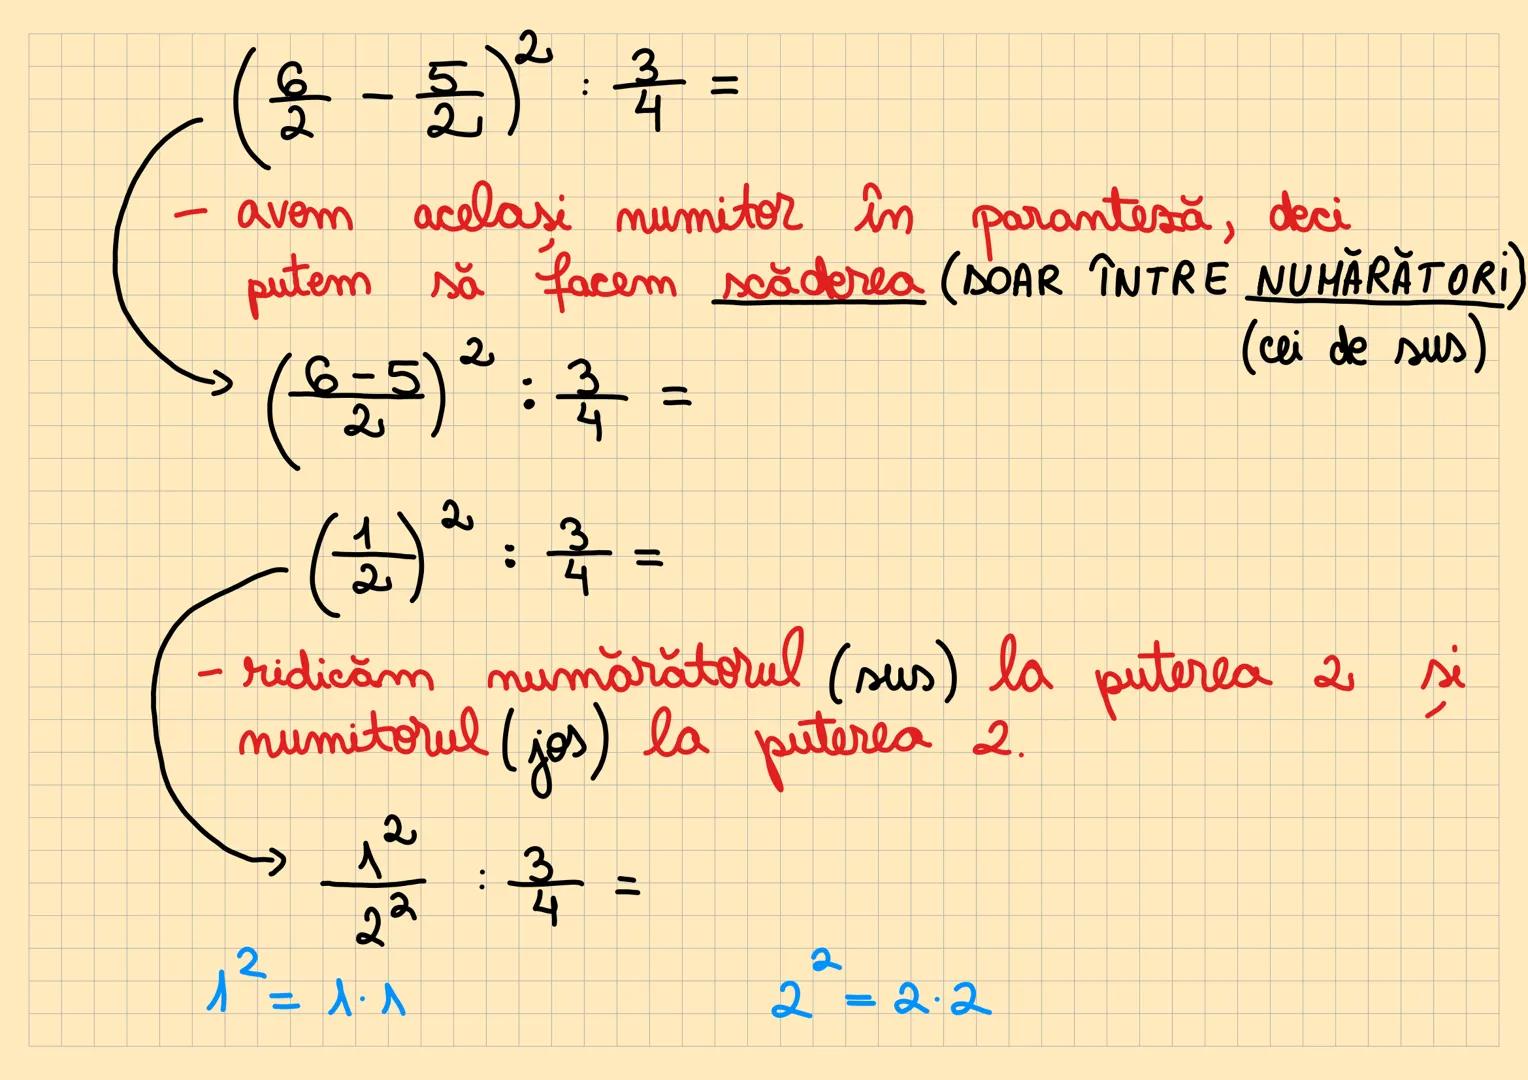 (6/2 - 5/2)² : 3/4 =
- avem același numitor în paranteză, deci
putem să facem scăderea (DOAR ÎNTRE NUMĂRĂTORI)
(cei de sus)
((6-5)/2)² : 3/4 =
(1/2)² : 3/4 =
- ridicăm numărătorul (sus) la puterea 2 și
numitorul (jos) la puterea 2.
1²/2² : 3/4 =
1² = 1·1 2² = 2·2